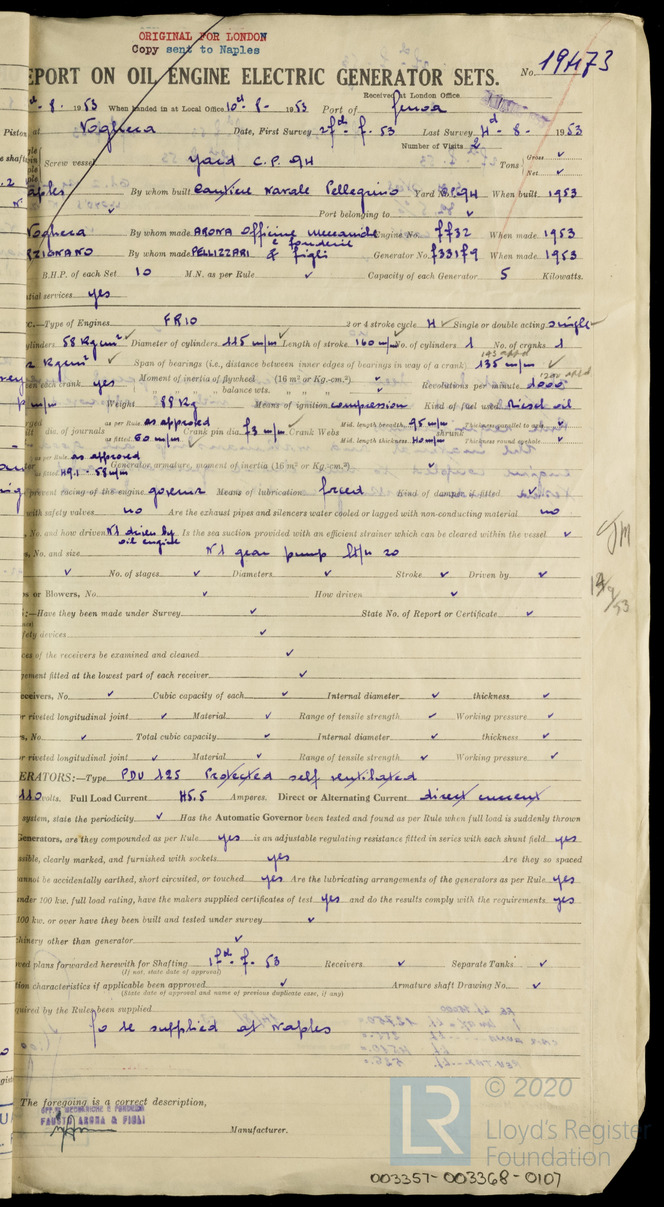 ORIGINAL FOR LONDON
Copy sent to Naples
EPORT ON OIL ENGINE ELECTRIC GENERATOR SETS.
No. 19473
Received at London Office
8 - 1953 When handed in at Local Office 10 - 8 - 1953 Port of Genoa
Piston at Voghera Date, First Survey Last Survey 4 - 8 - 1953
Number of Visits 2
Screw vessel yard C.P. 94 Tons Gross ✓
Net ✓
aples. By whom built Cantiere Navale Pellegrino Yard No. C.P.94 When built 1953
Port belonging to ✓
Voghera By whom made ARONA Officine meccaniche Engine No. 7732 When made 1953
e fonderie
RZIGNANO By whom made PELLIZZARI & figli Generator No. 733179 When made 1953
B.H.P. of each Set 10 M.N. as per Rule ✓ Capacity of each Generator 5 Kilowatts.
tial services yes
Type of Engines FR10 2 or 4 stroke cycle 4 Single or double acting single
ylinders 58 Kg cm² Diameter of cylinders 115 m/m Length of stroke 160 m/m No. of cylinders 1 No. of cranks 1
Kg cm² Span of bearings (i.e., distance between inner edges of bearings in way of a crank) 135 m/m
each crank yes Moment of inertia of flywheel (16 m² or Kg.-cm.²) ✓ Revolutions per minute
balance wts. ✓
m/m Weight 88 Kg Means of ignition compression Kind of fuel used Diesel oil
dia. of journals as per Rule as approved Crank pin dia. 73 m/m Crank Webs Mid. length breadth 95 m/m
as fitted 60 m/m Mid. length thickness 40 m/m shrunk Thickness round eyehole ✓
as per Rule as approved
Generator armature, moment of inertia (16 m² or Kg.-cm.²) ✓
as fitted 49.1 - 58 m/m
prevent racing of the engine governor Means of lubrication forced Kind of damper if fitted ✓
with safety valves no Are the exhaust pipes and silencers water cooled or lagged with non-conducting material no
No. and how driven N°1 driven by oil engine Is the sea suction provided with an efficient strainer which can be cleared within the vessel ✓
s, No. and size N°1 gear pump lt/h 20
✓ No. of stages ✓ Diameters ✓ Stroke ✓ Driven by ✓
s or Blowers, No. ✓ How driven ✓
:—Have they been made under Survey ✓ State No. of Report or Certificate ✓
fety devices ✓
ces of the receivers be examined and cleaned ✓
gement fitted at the lowest part of each receiver ✓
eceivers, No. ✓ Cubic capacity of each ✓ Internal diameter ✓ thickness ✓
r riveted longitudinal joint ✓ Material ✓ Range of tensile strength ✓ Working pressure ✓
s, No. ✓ Total cubic capacity ✓ Internal diameter ✓ thickness ✓
r riveted longitudinal joint ✓ Material ✓ Range of tensile strength ✓ Working pressure ✓
ERATORS:—Type PDU 125 Protected self ventilated
110 volts. Full Load Current 45.5 Amperes. Direct or Alternating Current direct current
system, state the periodicity ✓ Has the Automatic Governor been tested and found as per Rule when full load is suddenly thrown
Generators, are they compounded as per Rule yes is an adjustable regulating resistance fitted in series with each shunt field yes
ssible, clearly marked, and furnished with sockets yes Are they so spaced
annot be accidentally earthed, short circuited, or touched yes Are the lubricating arrangements of the generators as per Rule yes
under 100 kw. full load rating, have the makers supplied certificates of test yes and do the results comply with the requirements yes
100 kw. or over have they been built and tested under survey ✓
hinery other than generator ✓
ved plans forwarded herewith for Shafting 17 - 7 - 53 Receivers ✓ Separate Tanks ✓
(If not, state date of approval)
tion characteristics if applicable been approved ✓ Armature shaft Drawing No. ✓
(State date of approval and name of previous duplicate case, if any)
quired by the Rules been supplied
To be supplied at Naples
The foregoing is a correct description,
OFF. MECCANICHE & FONDERIE
FAUSTO ARONA & FIGLI
Manufacturer.
JM
© 2020
LR
Lloyd's Register
Foundation
003357-003368-0107